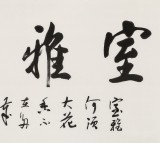 室雅
室雅
何須
大花
香不
在多